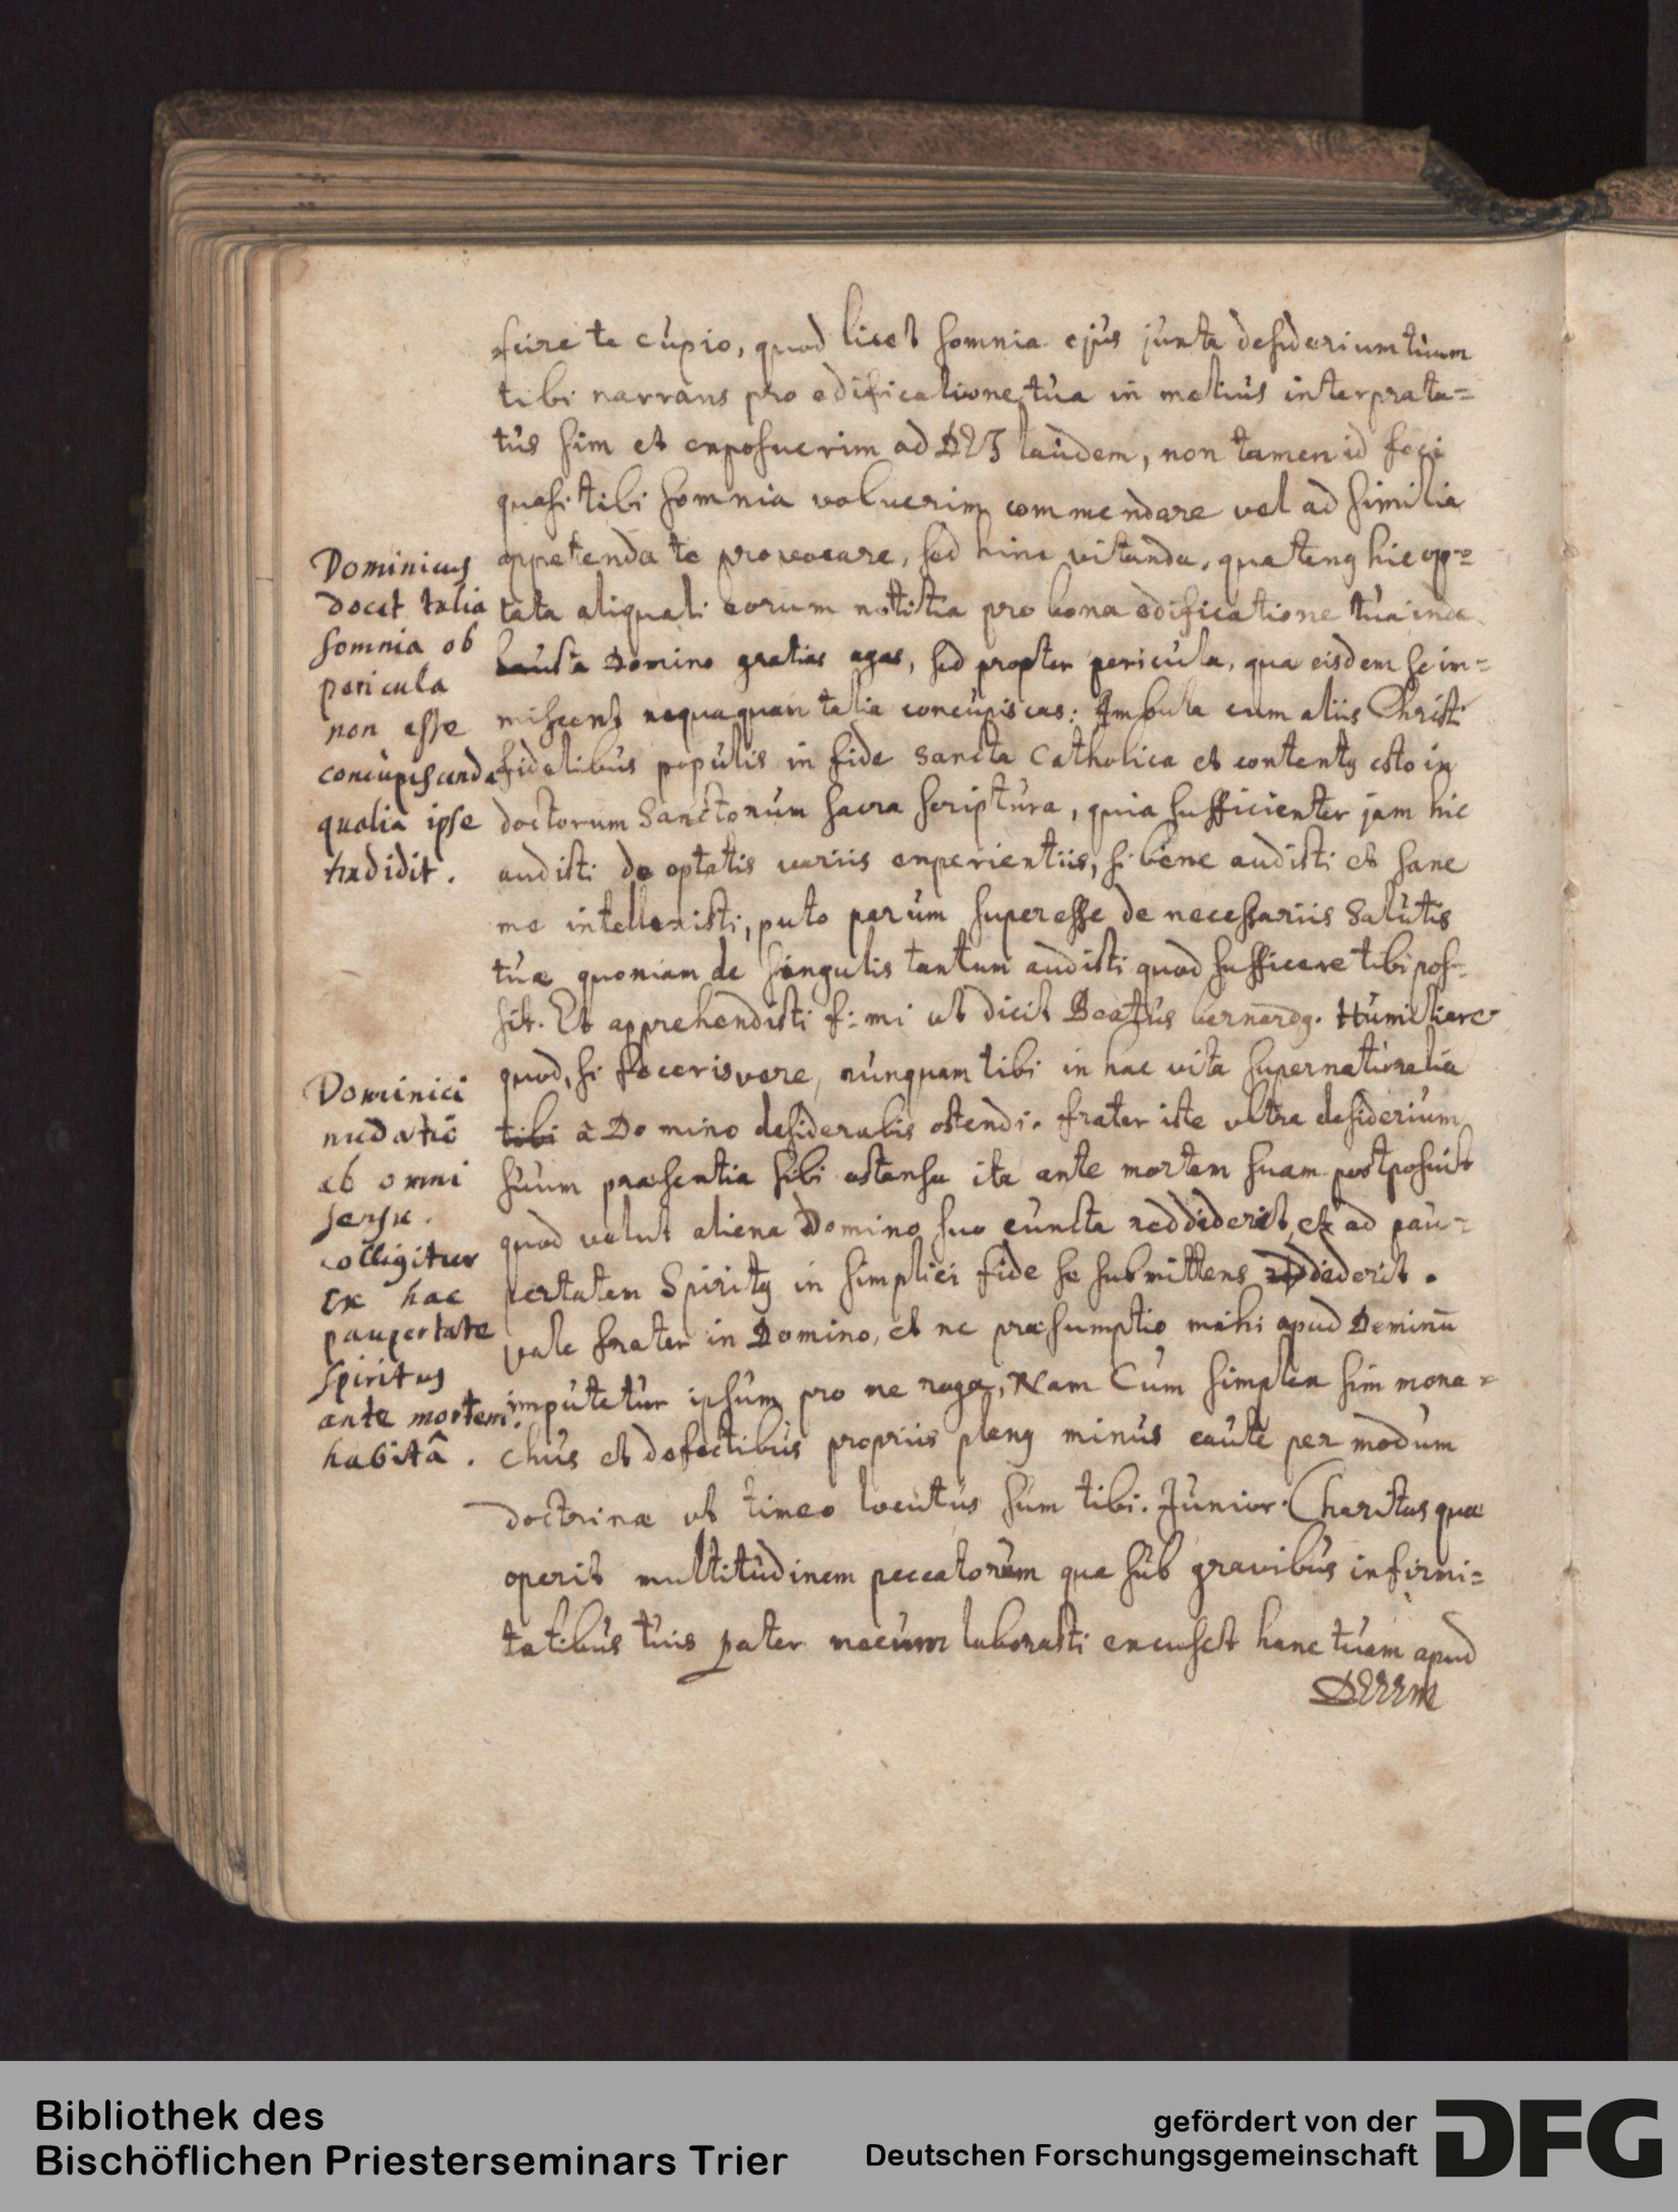 scire te cupio, quod licet somnia ejus juxta desiderium tuum
tibi narrans pro edificatione tua in melius interpreta=
tus sim et exposuerim ad DEI laudem, non tamen id feci
quasi tibi somnia voluerim commendare vel ad similia
appetenda te provocare, sed hinc vitanda, quateng hic op=
tata aliquali eorum notitia pro bona edificatione tua inde
hausta Domino gratias agas, sed propter pericula, qua eisdem se im=
miscent nequaquam talia concupiscas: Ambula cum aliis Christi
fidelibus populis in fide sancta Catholica et contentg esto in
doctorum Sanctorum sacra scriptura, quia sufficienter jam hic
audisti de optatis variis experientiis, si bene audisti et sane
me intellexisti, puto parum superesse de necessariis Salutis
tuæ quoniam de singulis tantum audisti quod sufficere tibi pos=
sit. Et apprehendisti f: mi ut dicit Beatus bernardg. Humiliare
quod, si feceris vere, nunquam tibi in hac vita supernaturalia
tibi à Domino desiderabis ostendi. frater iste ultra desiderium
suum præsentia sibi ostensa ita ante mortem suam postposuit
quod velut aliena Domino suo cuncta reddiderit, et ad pau=
pertatem Spiritg in simplici fide se submittens dederit.
vale frater in Domino, et ne præsumptio mihi apud Dominū
imputetur ipsum pro me roga, Nam Cum simplex sim mona=
chus et defectibus propriis pleng minus caute per modum
doctrinæ ut timeo locutus sum tibi. Junior. Charitas quæ
operit multitudinem peccatorum qua sub gravibus infirmi=
tatibus tuis pater mecum laborasti excuset hanc tuam apud
DEUM
Dominicus
docet talia
somnia ob
pericula
non esse
concupiscenda
qualia ipse
tradidit.
Dominici
nudatiō
ab omni
sensu.
colligitur
ex hac
paupertate
spiritus
ante mortem
habitâ.
Bibliothek des
Bischöflichen Priesterseminars Trier
gefördert von der
Deutschen Forschungsgemeinschaft
DFG